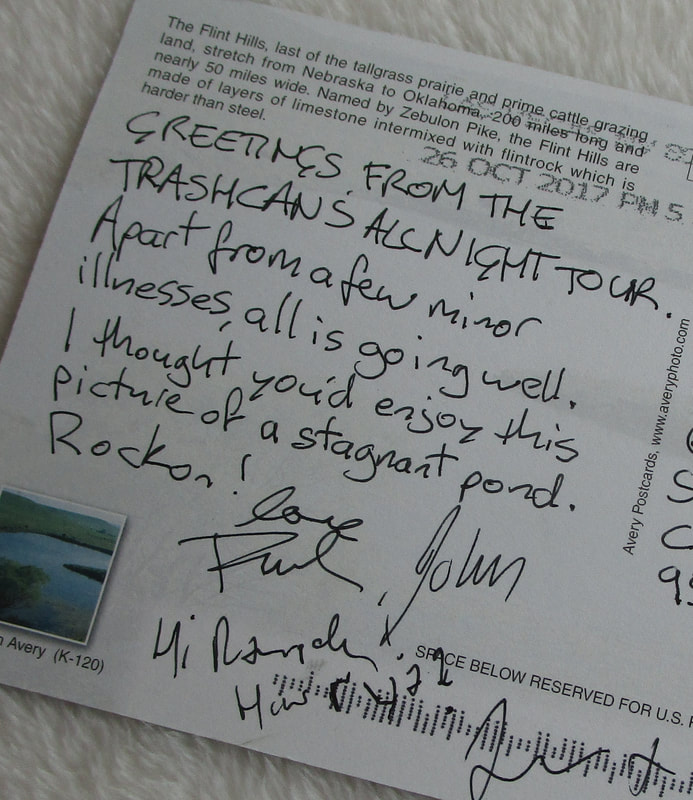 The Flint Hills, last of the tallgrass prairie and prime cattle grazing
land, stretch from Nebraska to Oklahoma, 200 miles long and
nearly 50 miles wide. Named by Zebulon Pike, the Flint Hills are
made of layers of limestone intermixed with flintrock which is
harder than steel.
26 OCT 2017 PM 5
GREETINGS FROM THE
TRASHCANS ALL NIGHT TOUR.
Apart from a few minor
illnesses, all is going well.
I thought you'd enjoy this
picture of a stagnant pond.
Rock on!
love
Paul, John
Hi
Avery Postcards, www.averyphoto.com
Avery (K-120)
SPACE BELOW RESERVED FOR U.S.